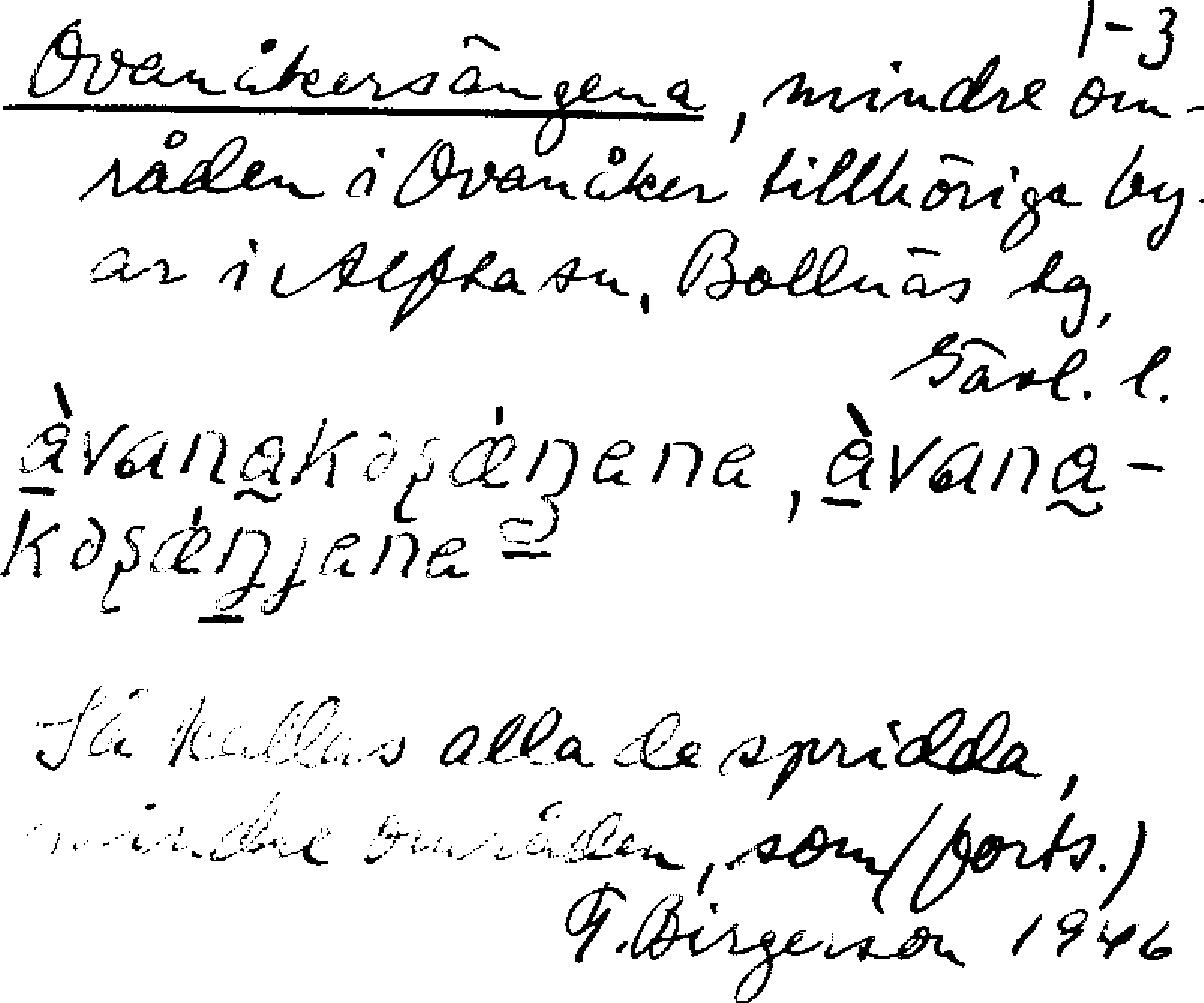 1-3
Ovanåkersängena, mindre om-
råden i Ovanåker tillhöriga by-
ar i Alfta sn, Bollnäs tg,
Gävl. l.
Så kallas alla de spridda,
mindre områden, som (forts.)
T. Birgerson 1946